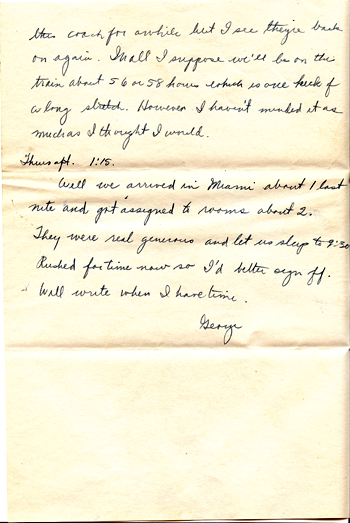 the coach for awhile but I see they're back
on again. In all I suppose we'll be on the
train about 56 or 58 hours which is one heck of
a long stretch. However I haven't minded it as
much as I thought I would.
Thurs aft. 1:15.
Well we arrived in Miami about 1 last
nite and got assigned to rooms about 2.
They were real generous and let us sleep to 9:30
Rushed for time now so I'd better sign off.
Will write when I have time.
George